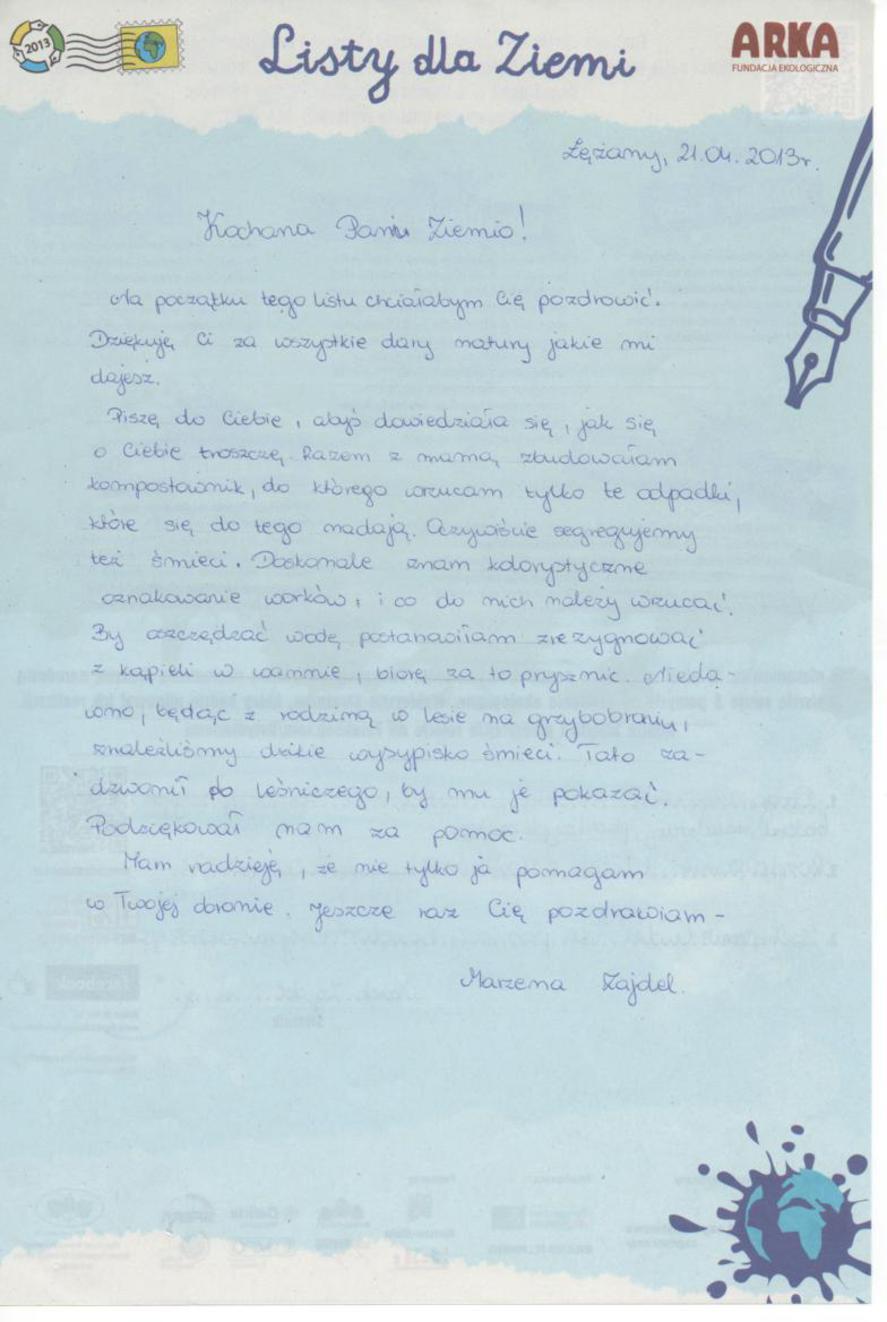 2013
Listy dla Ziemi
ARKA
FUNDACJA EKOLOGICZNA
Łężany, 21.04.2013r.
Kochana Pani Ziemio!
Na początku tego listu chciałabym Cię pozdrowić.
Dziękuję Ci za wszystkie dary natury jakie mi
dajesz.
Piszę do Ciebie, abyś dowiedziała się, jak się
o Ciebie troszczę. Razem z mamą zbudowałam
kompostownik, do którego wrzucam tylko te odpadki,
które się do tego nadają. Oczywiście segregujemy
też śmieci. Doskonale znam kolorystyczne
oznakowanie worków, i co do nich należy wrzucać.
By oszczędzać wodę postanowiłam zrezygnować
z kąpieli w wannie, biorę za to prysznic. Nieda-
wno, będąc z rodziną w lesie na grzybobraniu,
znaleźliśmy dzikie wysypisko śmieci. Tato za-
dzwonił po leśniczego, by mu je pokazać.
Podziękował nam za pomoc.
Mam nadzieję, że nie tylko ja pomagam
w Twojej obronie. Jeszcze raz Cię pozdrawiam -
Marzena Zajdel.